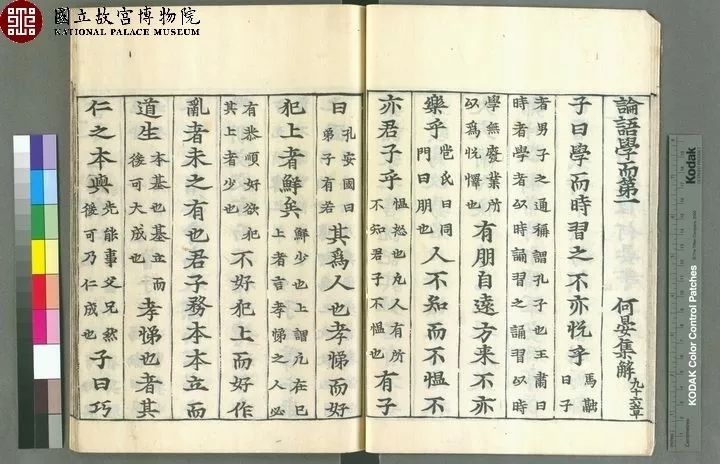 國立故宮博物院
NATIONAL PALACE MUSEUM
論語學而第一 何晏集解 凢十六章
子曰學而時習之不亦悅乎 馬融曰子
者男子之通稱謂孔子也王肅曰
時者學者以時誦習之誦習以時
學無廢業所以爲悅懌也 有朋自遠方来不亦
樂乎 苞氏曰同門曰朋也 人不知而不慍不
亦君子乎 慍怒也凢人有所不知君子不慍也 有子
曰 孔安國曰弟子有若 其爲人也孝悌而好
犯上者鮮矣 鮮少也上謂凢在己上者言孝悌之人必
有恭順好欲犯其上者少也 不好犯上而好作
亂者未之有也君子務本本立而
道生 本基也基立而後可大成也 孝悌也者其
仁之本與 先能事父兄然後可乃仁成也 子曰巧
KODAK Color Control Patches
Kodak